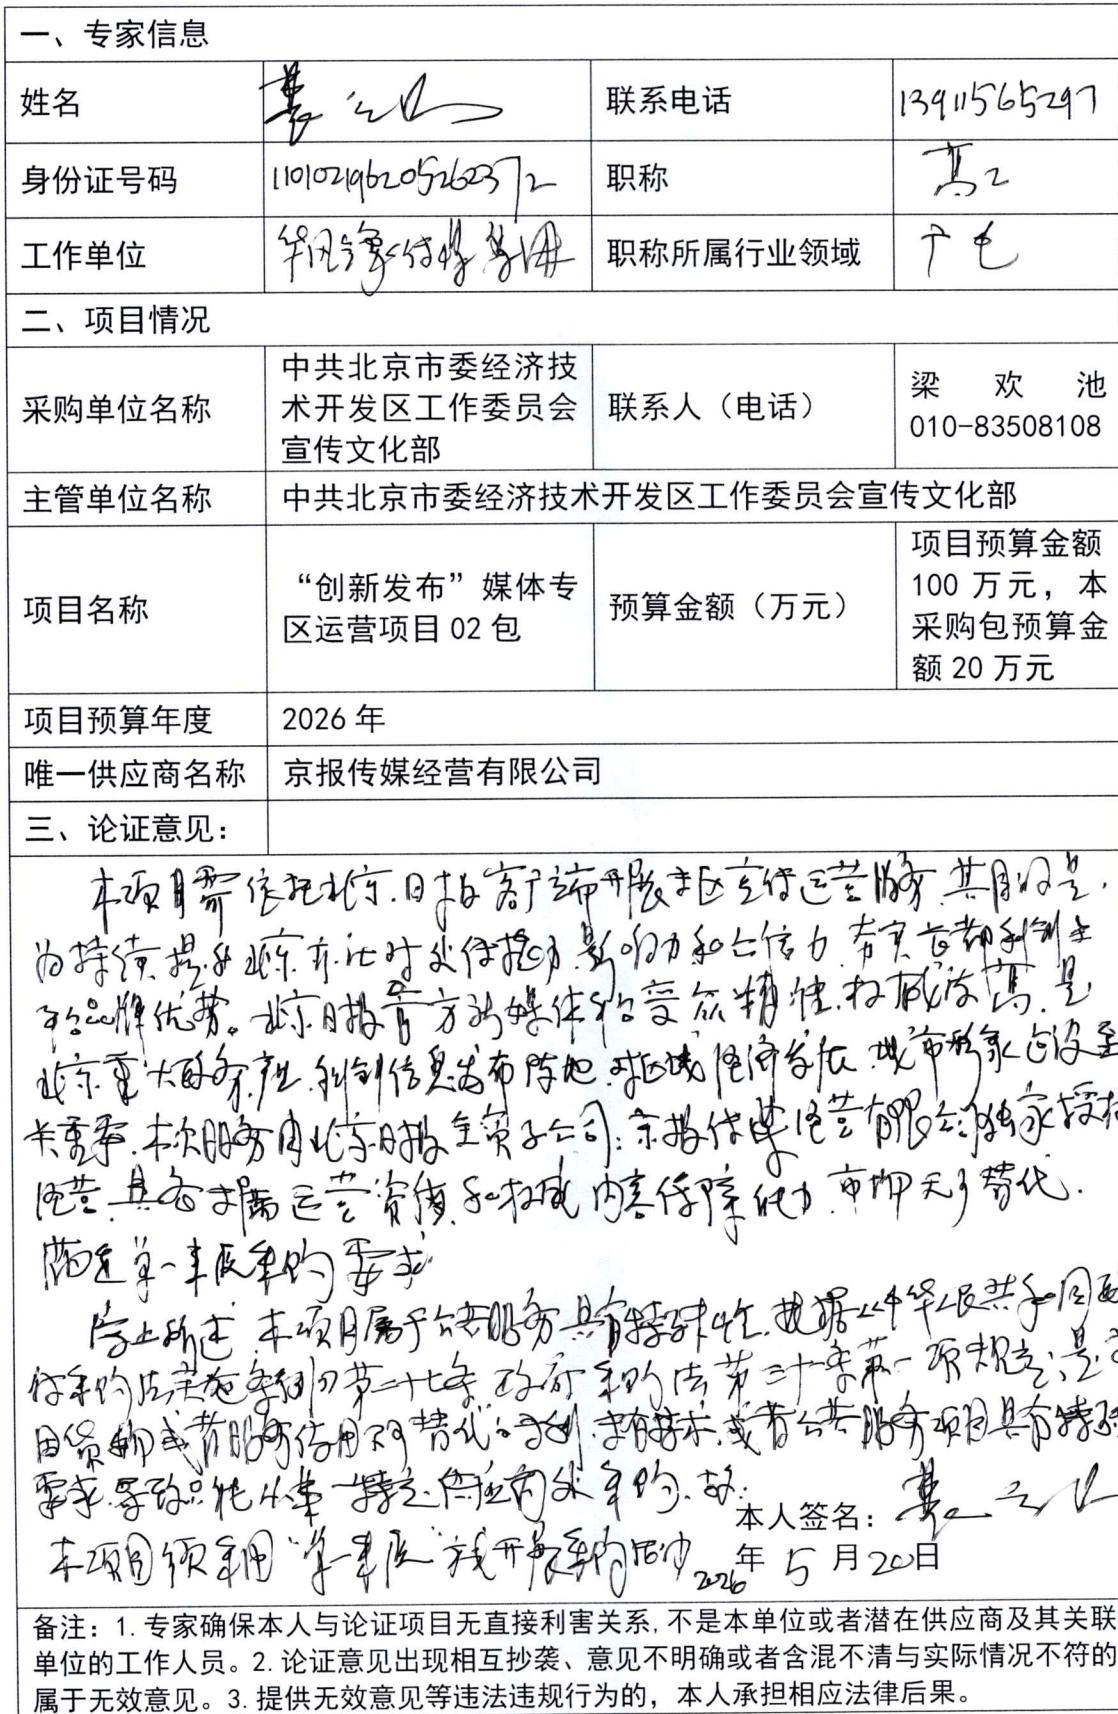 一、专家信息
姓名 联系电话 13911565297
身份证号码 110102196205262372 职称 高工
工作单位 华风气象传媒集团 职称所属行业领域 广电
二、项目情况
采购单位名称 中共北京市委经济技术开发区工作委员会宣传文化部 联系人（电话） 梁欢池 010-83508108
主管单位名称 中共北京市委经济技术开发区工作委员会宣传文化部
项目名称 “创新发布”媒体专区运营项目02包 预算金额（万元） 项目预算金额100万元，本采购包预算金额20万元
项目预算年度 2026年
唯一供应商名称 京报传媒经营有限公司
三、论证意见：
本项目需依托北京日报客户端开展专区宣传运营服务.其目的是.
为持续提升北京亦庄对外传播力.影响力和公信力.夯实首都科创主
平台品牌优势。北京日报官方新媒体平台受众精准.权威性高.是
北京重大政务.产业.科创信息发布阵地.对区域经济发展.城市形象建设至
关重要.本次服务由北京日报全资子公司:京报传媒经营有限公司独家授权
经营.具备专属运营资质和权威内容保障能力.市场无可替代.
满足单一来源采购要求
综上所述.本项目属于公共服务具有特殊性.根据《中华人民共和国政
府采购法实施条例》第二十七条.政府采购法第三十一条第一项规定;是
因货物或者服务使用不可替代的专利.专有技术.或者公共服务项目具有特殊
要求.导致只能从某一特定供应商处采购.故:
本项目须采用“单一来源”方式开展采购活动
本人签名：
2026年5月20日
备注：1.专家确保本人与论证项目无直接利害关系,不是本单位或者潜在供应商及其关联
单位的工作人员。2.论证意见出现相互抄袭、意见不明确或者含混不清与实际情况不符的
属于无效意见。3.提供无效意见等违法违规行为的，本人承担相应法律后果。